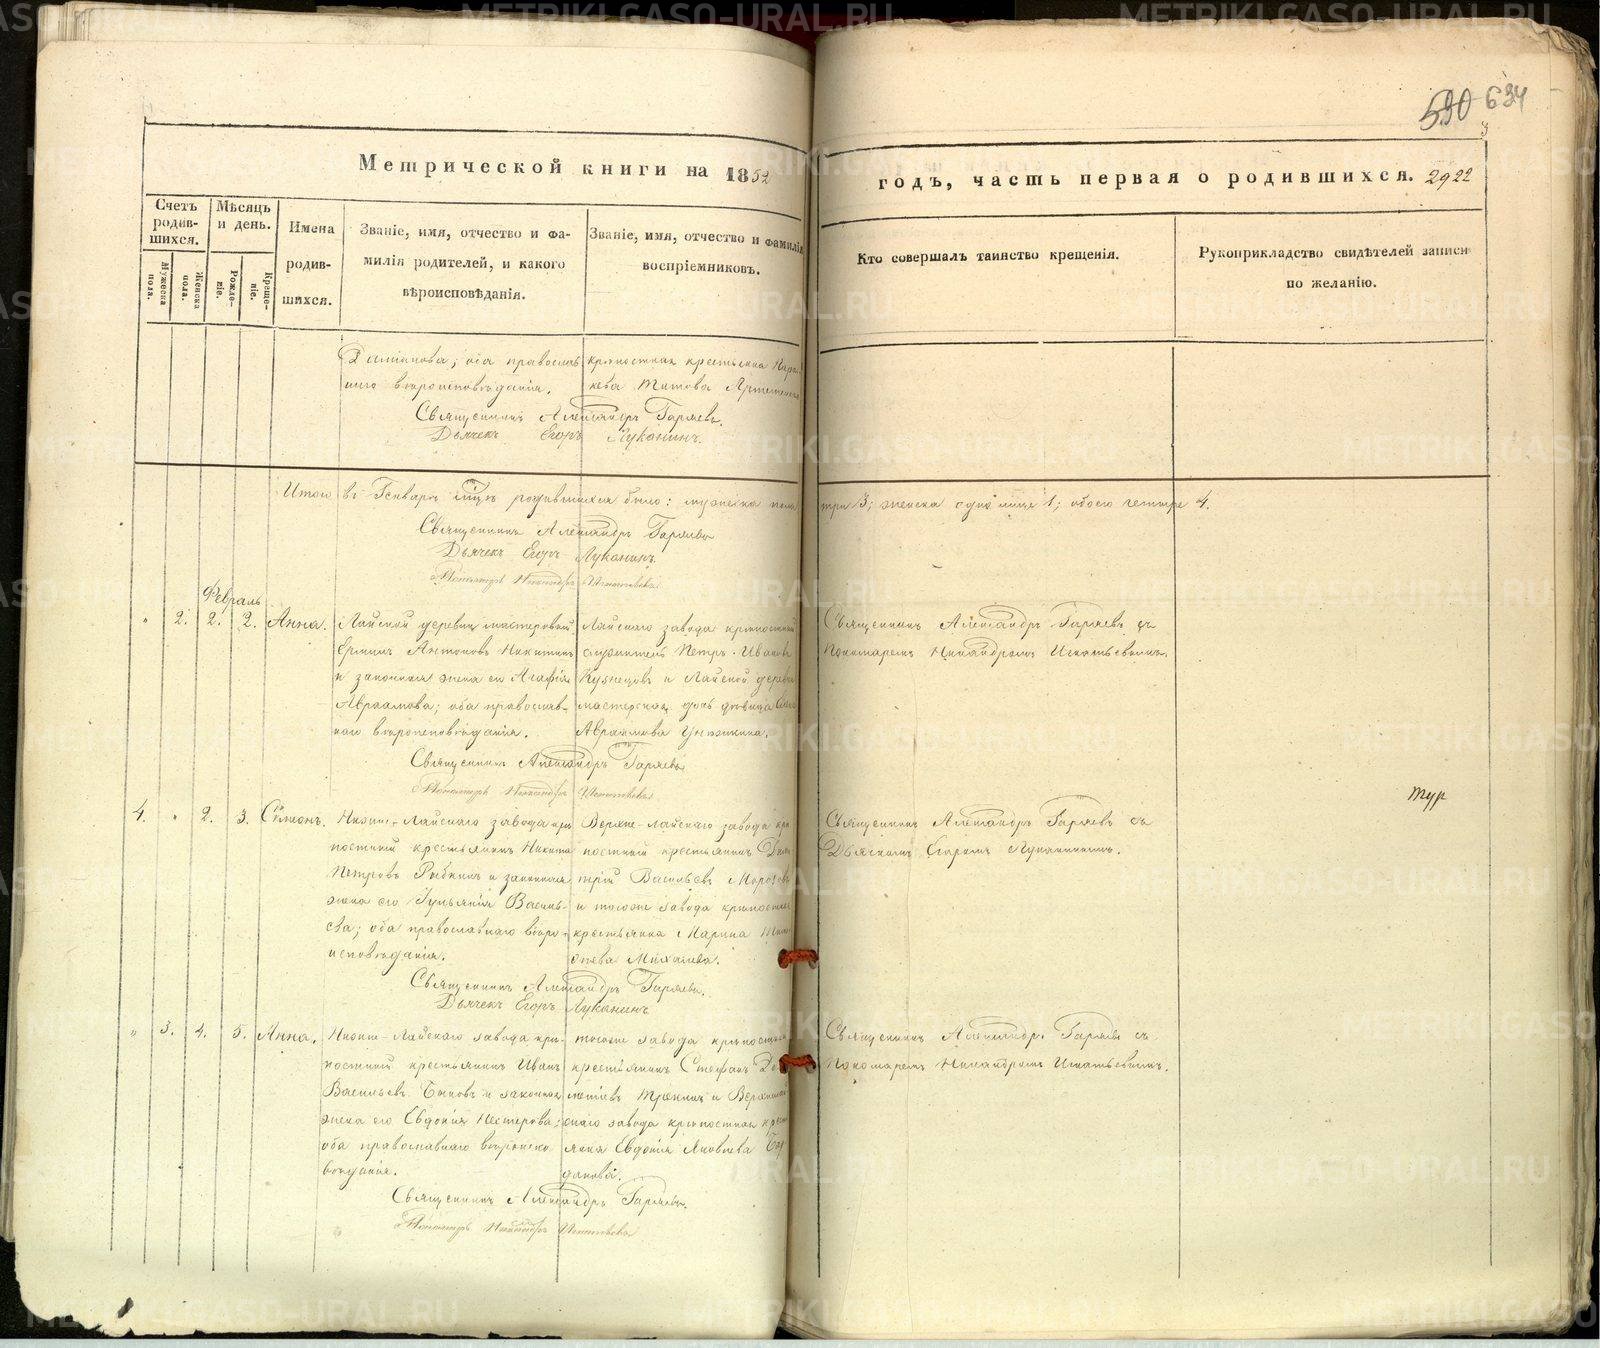 590 634
Метрической книги на 1852
годъ, часть первая о родившихся. 2922
Счетъ родив-шихся.
Мѣсяцъ и день.
Имена родив-шихся.
Званіе, имя, отчество и фа-
милія родителей, и какого
вѣроисповѣданія.
Званіе, имя, отчество и фамилія
воспріемниковъ.
Кто совершалъ таинство крещенія.
Рукоприкладство свидѣтелей записи
по желанію.
Мужеска пола.
Женска пола.
Рожде-ніе.
Креще-ніе.
оба православ
наго вѣроисповѣданія.
крѣпостная крестьянка
Титова
Священникъ Александръ Гаряевъ.
Дьячекъ Егоръ Луканинъ.
Итого въ Генварѣ мцѣ родившихся было: мужеска пола
три 3; женска одно лице 1; обоего четыре 4.
Священникъ Александръ Гаряевъ
Дьячекъ Егоръ Луканинъ.
Пономарь Никандръ
Февраль
" 2. 2. 2. Анна.
Лайской деревни мастеровой
Антоновъ Никитинъ
и законная жена его Агафія
Авраамова; оба православ-
наго вѣроисповѣданія.
Лайскаго завода крѣпостный
служитель Петръ Ивановъ
Кузнецовъ и Лайской деревни
мастерская дочь дѣвица
Авраамова
Священникъ Александръ Гаряевъ съ
Пономаремъ Никандромъ
Священникъ Александръ Гаряевъ
Пономарь Никандръ
тур
4. " 2. 3. Симеонъ.
Нижне-Лайскаго завода крѣ
постный крестьянинъ Никита
Петровъ Рыбкинъ и законная
жена его Васильева;
оба православнаго вѣро-
исповѣданія.
Верхне-Лайскаго завода крѣ
постный крестьянинъ Дими
трій Васильевъ Морозовъ
и тогоже завода крѣпостная
крестьянка Марина
Михалева.
Священникъ Александръ Гаряевъ съ
Дьячкомъ Егоромъ Луканинымъ.
Священникъ Александръ Гаряевъ.
Дьячекъ Егоръ Луканинъ
" 3. 4. 5. Анна.
Нижне-Лайскаго завода крѣ-
постный крестьянинъ Иванъ
Васильевъ Быковъ и законная
жена его Евдокія Нестерова;
оба православнаго вѣроиспо
вѣданія.
тогоже завода крѣпостный
крестьянинъ Стефанъ
и Верхнелай
скаго завода крѣпостная крест
янка Евдокія Яковлева
Священникъ Александръ Гаряевъ съ
Пономаремъ Никандромъ
Священникъ Александръ Гаряевъ.
Пономарь Никандръ
METRIKI.GASO-URAL.RU